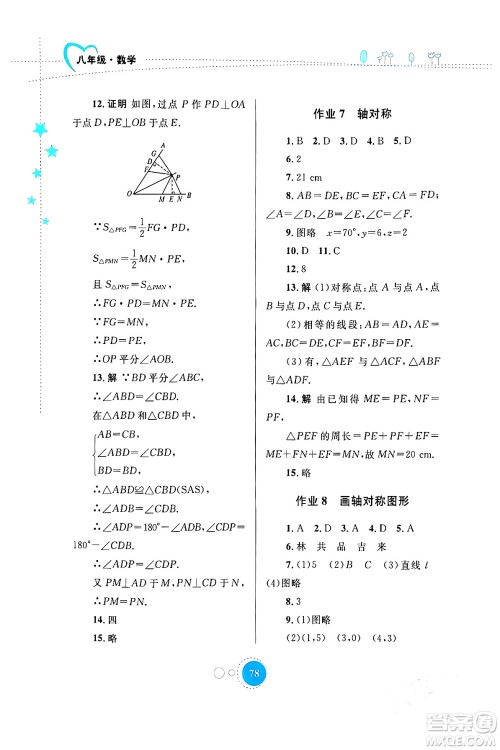 八年级·数学
12.证明 如图,过点 P 作 PD⊥OA
于点 D,PE⊥OB 于点 E.
A
G
D
F
P
O
M E N B
∵S△PFG=1/2 FG·PD,
S△PMN=1/2 MN·PE,
且 S△PFG=S△PMN,
∴FG·PD=MN·PE,
∵FG=MN,
∴PD=PE,
∴OP 平分∠AOB.
13.解 ∵BD 平分∠ABC,
∴∠ABD=∠CBD.
在△ABD 和△CBD 中,
AB=CB,
∠ABD=∠CBD,
BD=BD,
∴△ABD≌△CBD(SAS),
∴∠ADB=∠CDB.
∵∠ADP=180°-∠ADB,∠CDP=
180°-∠CDB.
∴∠ADP=∠CDP.
又∵PM⊥AD,PN⊥CD,
∴PM=PN.
14.四
15.略
作业 7 轴对称
1.B 2.D 3.D 4.A 5.D
6.2
7.21 cm
8.AB=DE,BC=EF,AC=DF
∠A=∠D,∠B=∠E,∠C=∠F
9.图略 x=70°,y=6,z=2
10.D 11.C
12.8
13.解 (1)对称点:点 A 与点 A,点
B 与点 D,点 C 与点 E.
(2)相等的线段:AB=AD,AC=
AE,BC=DE.
(3)有,△AEF 与△ACF,△ABF
与△ADF.
14.解 由已知得 ME=PE,NF=
PF,
△PEF 的周长=PE+PF+EF=
ME+FN+EF=MN=20 cm.
15.略
作业 8 画轴对称图形
1.A 2.D 3.D 4.D 5.A
6.林 共 品 吉 来
7.(1)图略 (2)AC (3)直线 l
(4)图略
8.3
9.(1)图略
(2)(1,5) (1,0) (4,3)
78
答案圈